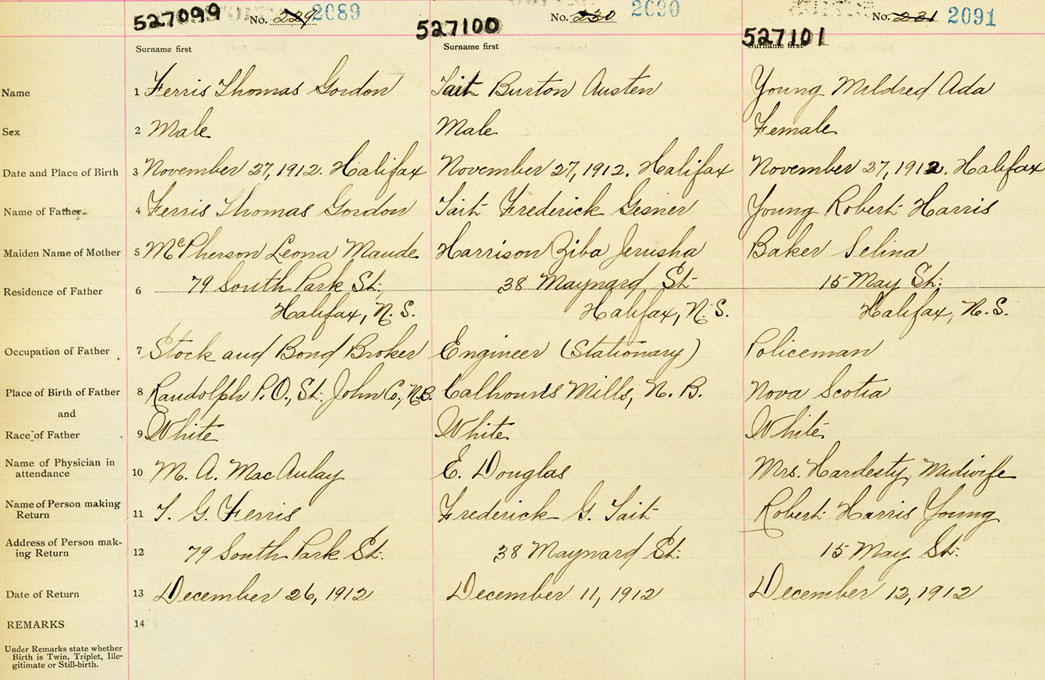 527099 No. 229 2089 527100 No. 230 2090 527101 No. 231 2091
Surname first Surname first Surname first
Name 1 Ferris Thomas Gordon Tait Burton Austen Young Mildred Ada
Sex 2 Male Male Female
Date and Place of Birth 3 November 27, 1912. Halifax November 27, 1912. Halifax November 27, 1912. Halifax
Name of Father 4 Ferris Thomas Gordon Tait Frederick Gesner Young Robert Harris
Maiden Name of Mother 5 McPherson Leona Maude Harrison Ziba Jerusha Baker Selina
Residence of Father 6 79 South Park St. 38 Maynard St 15 May St.
Halifax, N.S. Halifax, N.S. Halifax, N.S.
Occupation of Father 7 Stock and Bond Broker Engineer (Stationary) Policeman
Place of Birth of Father 8 Randolph P.O., St. John Co., N.B. Calhouns Mills, N.B. Nova Scotia
and
Race of Father 9 White White White
Name of Physician in attendance 10 M. A. MacAulay E. Douglas Mrs. Hardesty, Midwife
Name of Person making Return 11 T. G. Ferris Frederick G. Tait Robert Harris Young
Address of Person making Return 12 79 South Park St. 38 Maynard St. 15 May St.
Date of Return 13 December 26, 1912 December 11, 1912 December 12, 1912
REMARKS 14
Under Remarks state whether
Birth is Twin, Triplet, Ille-
gitimate or Still-birth.